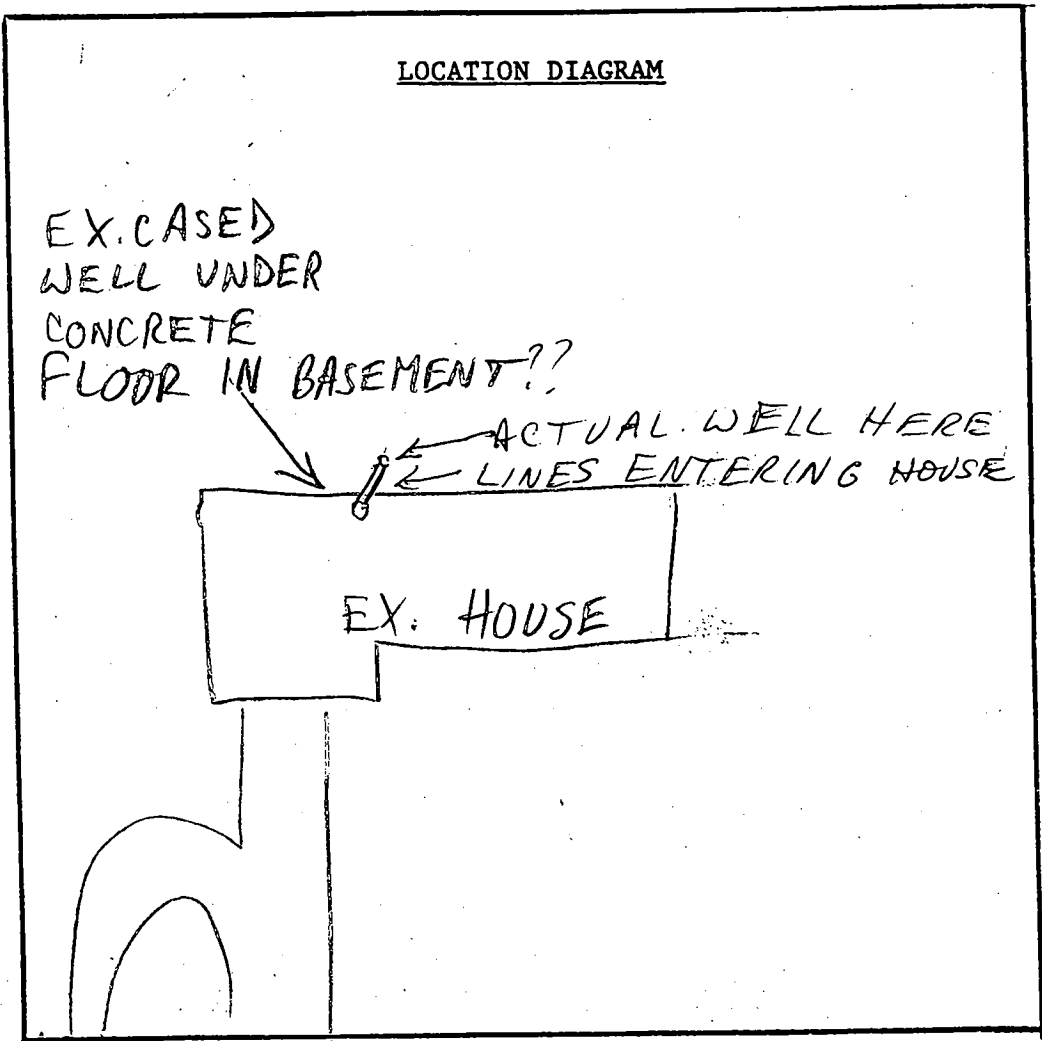 LOCATION DIAGRAM
EX. CASED
WELL UNDER
CONCRETE
FLOOR IN BASEMENT??
ACTUAL WELL HERE
LINES ENTERING HOUSE
EX. HOUSE